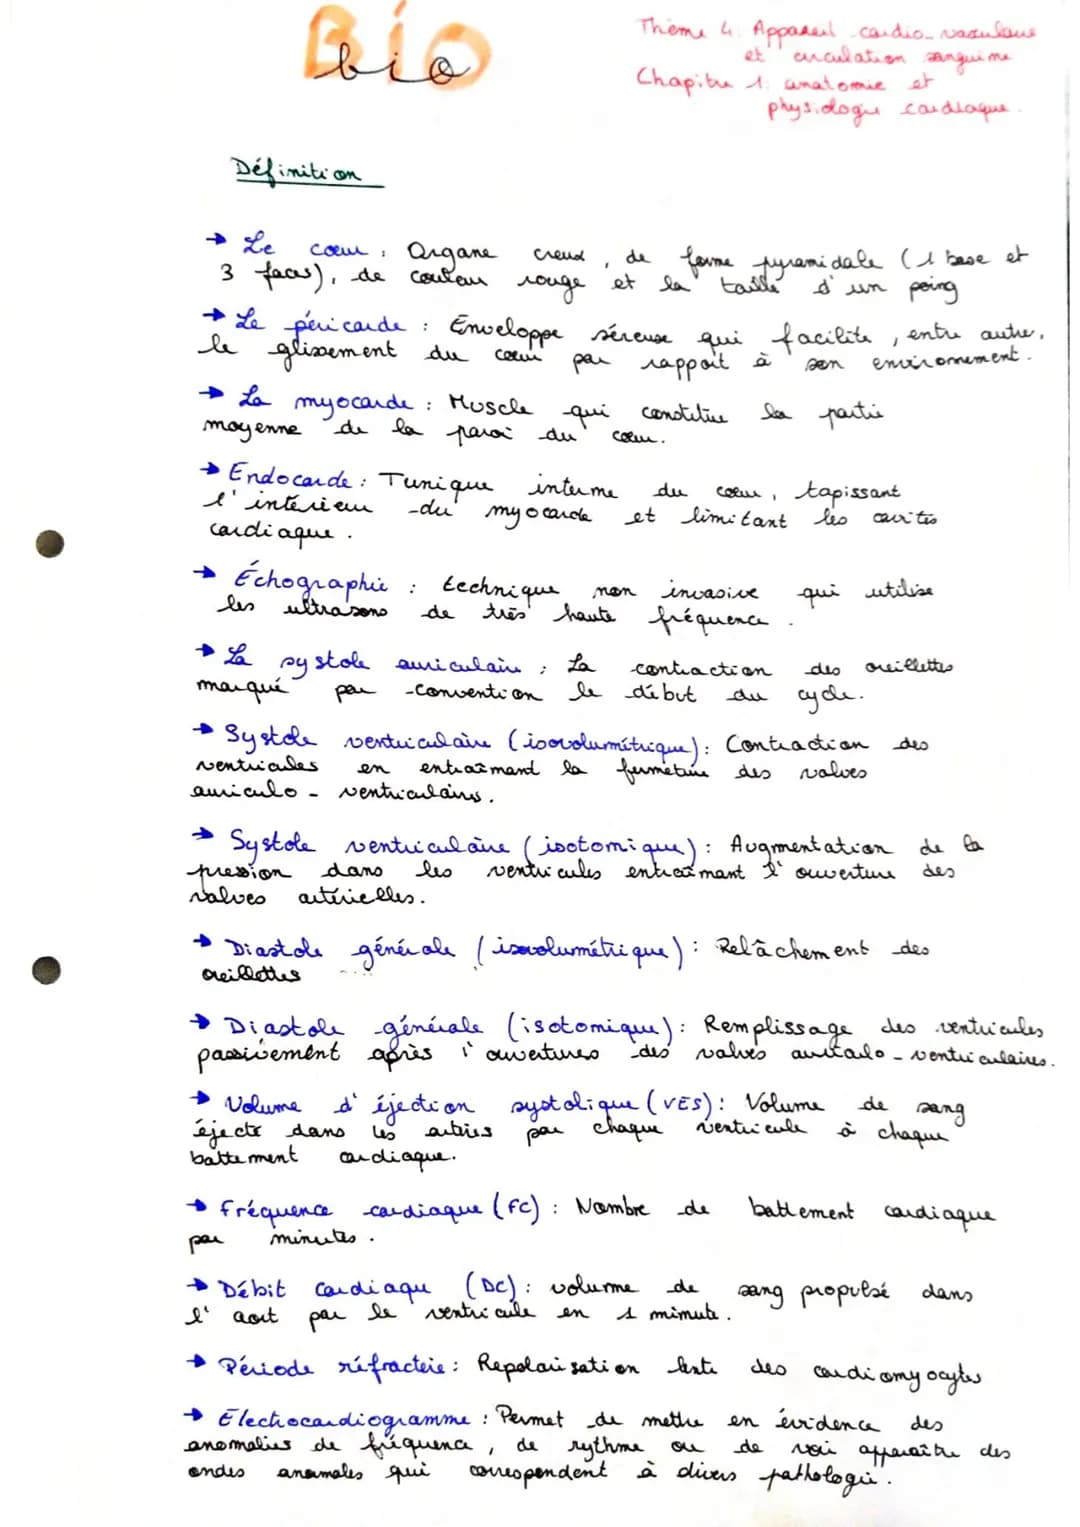 Bio
bio
Thème 4: Appareil cardio-vasculaire
et circulation sanguine
Chapitre 1: anatomie et
physiologie cardiaque.
Définition
→ Le coeur : Organe creux, de forme pyramidale (1 base et
3 faces), de couleur rouge et la taille d'un poing
→ Le péricarde : Enveloppe séreuse qui facilite, entre autre,
le glissement du coeur par rapport à son environnement.
→ La myocarde : Muscle qui constitue la partie
moyenne de la paroi du coeur.
→ Endocarde : Tunique interne du coeur, tapissant
l'intérieur du myocarde et limitant les cavités
cardiaque.
→ Échographie : technique non invasive qui utilise
les ultrasons de très haute fréquence.
→ La systole auriculaire : La contraction des oreillettes
marqué par convention le début du cycle.
→ Systole ventriculaire (isovolumétrique) : Contraction des
ventricules en entraînant la fermeture des valves
auriculo-ventriculaires.
→ Systole ventriculaire (isotonique) : Augmentation de la
pression dans les ventricules entraînant l'ouverture des
valves artérielles.
→ Diastole générale (isovolumétrique) : Relâchement des
oreillettes
→ Diastole générale (isotonique) : Remplissage des ventricules
passivement après l'ouvertures des valves auriculo-ventriculaires.
→ Volume d'éjection systolique (VES) : Volume de sang
éjecte dans les artères par chaque ventricule à chaque
battement cardiaque.
→ Fréquence cardiaque (FC) : Nombre de battement cardiaque
par minutes.
→ Débit cardiaque (DC) : volume de sang propulsé dans
l'aort par le ventricule en 1 minute.
→ Période réfractère : Repolarisation lente des cardiomyocytes
→ Electrocardiogramme : Permet de mettre en évidence des
anomalies de fréquence, de rythme ou de voir apparaître des
ondes anormales qui correspondent à divers pathologie.